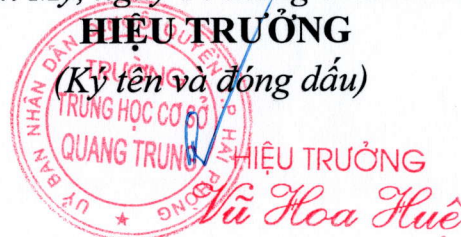 HIỆU TRƯỞNG
(Ký tên và đóng dấu)
ỦY BAN NHÂN DÂN
HẢI PHÒNG
TRƯỜNG
TRUNG HỌC CƠ SỞ
QUANG TRUNG
HIỆU TRƯỞNG
Vũ Hoa Huê